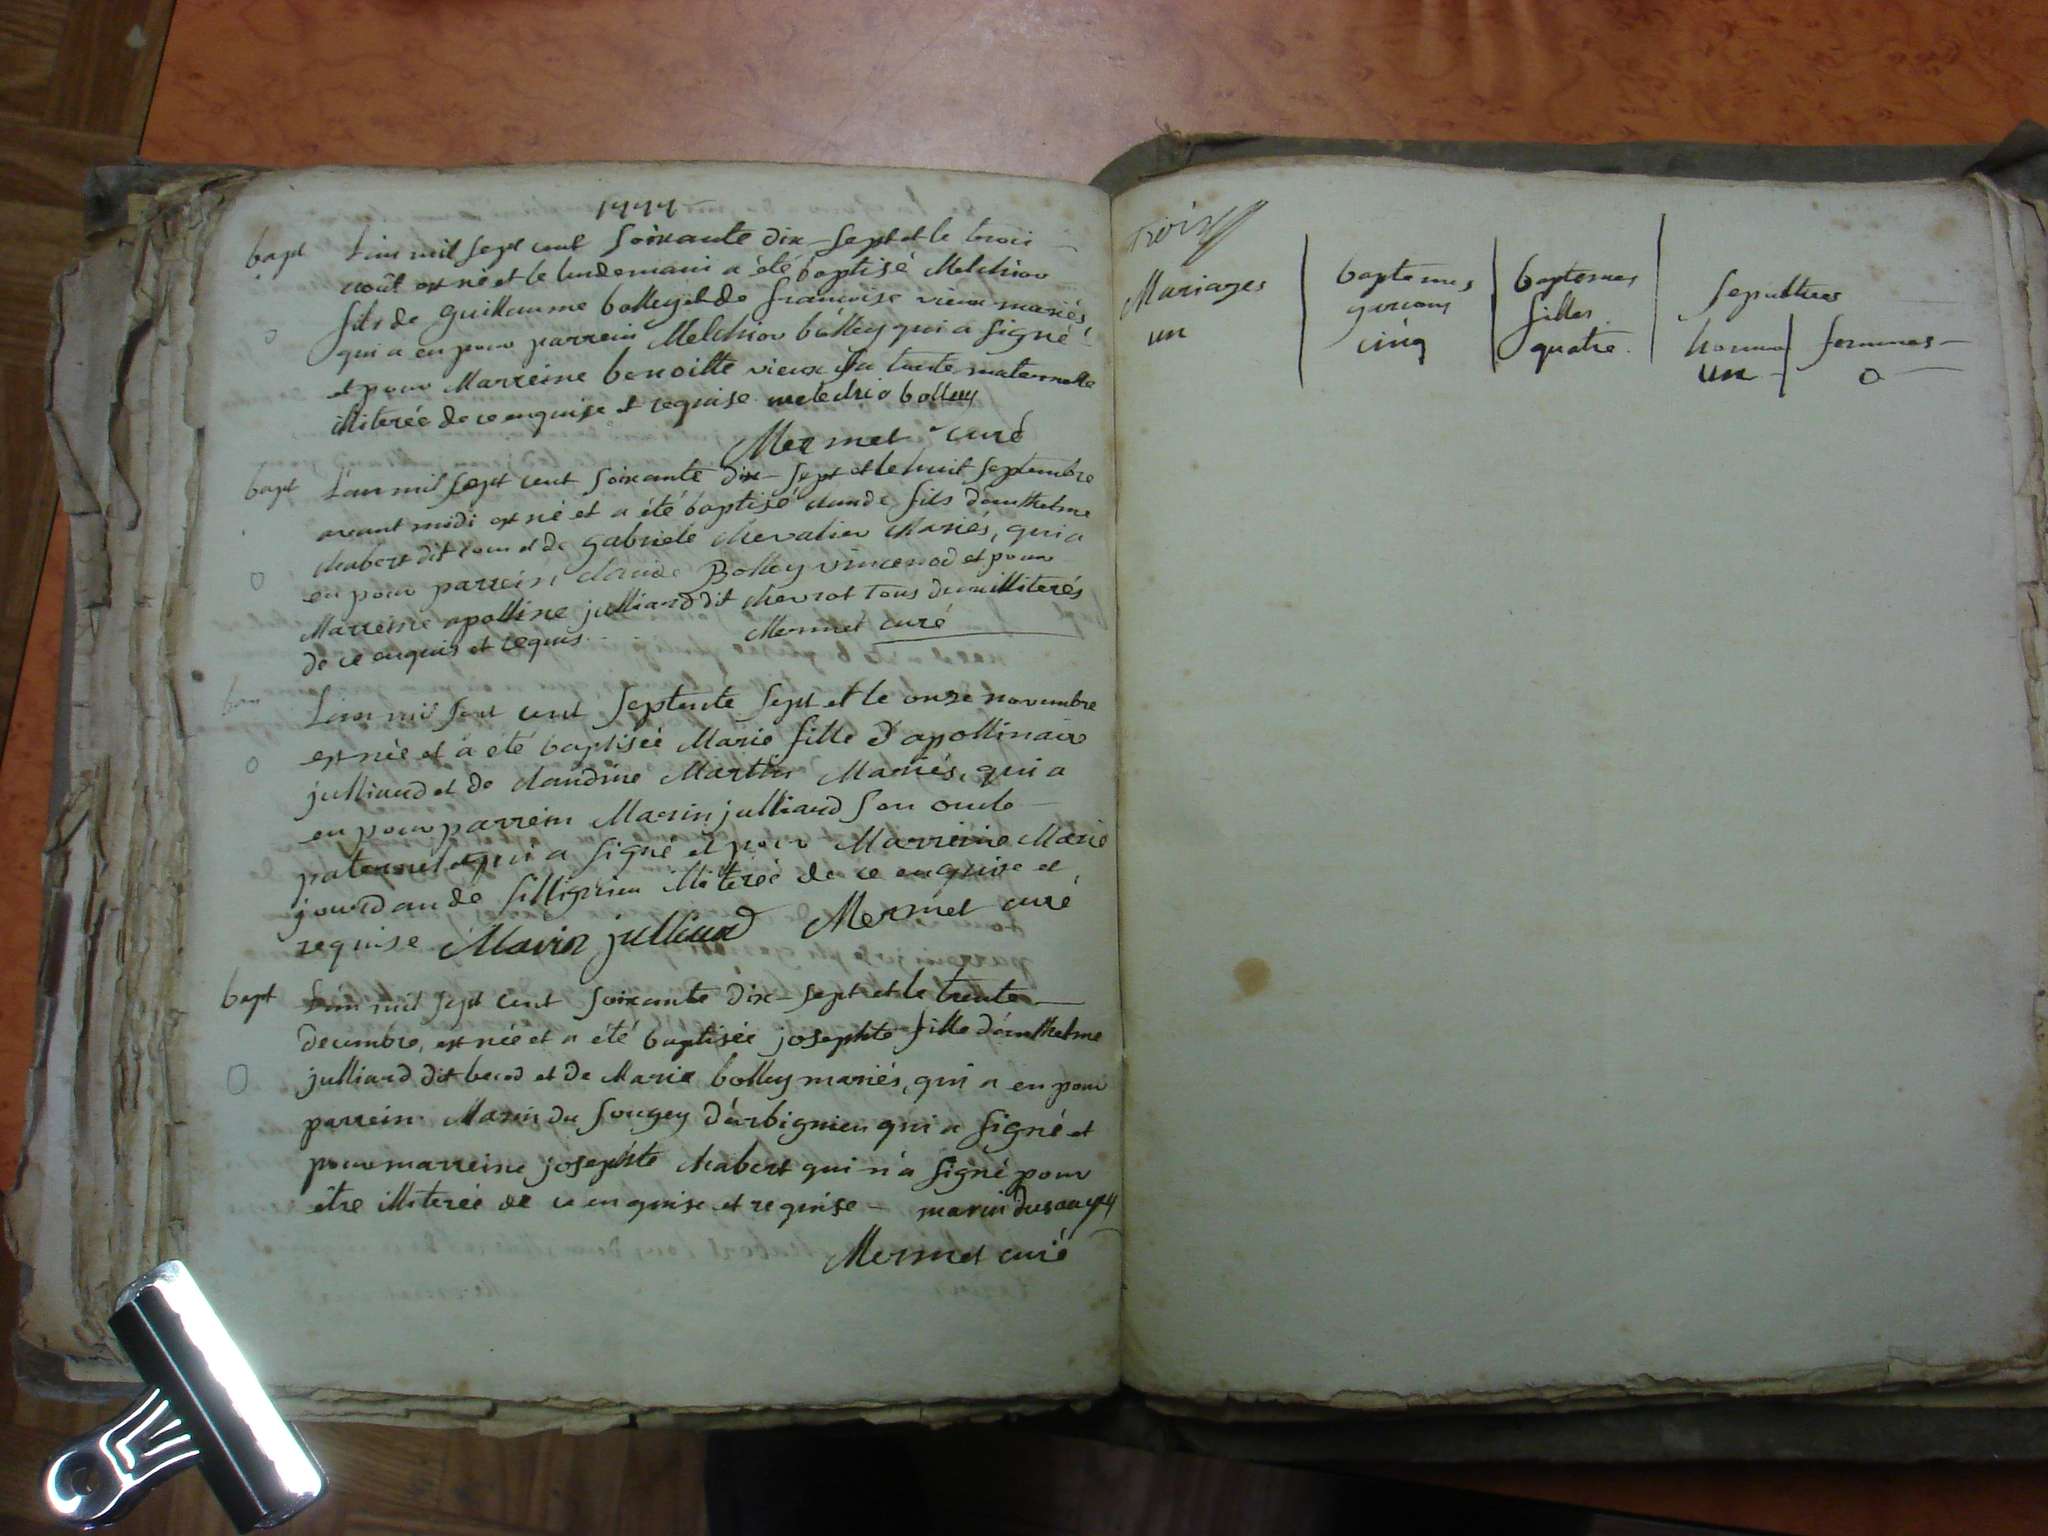 1777
bapt L'an mil sept cent soixante dix-sept et le trois
août est né et le lendemain a été baptisé Melchior
fils de Guillaume bolley et de francoise vieux mariés,
qui a eu pour parrein Melchior bolley qui a signé
et pour Marreine benoitte vieux sa tante maternelle
illiterée de ce enquise et requise melchio bolley
Mermet curé
bapt L'an mil sept cent soixante dix-sept et le huit septembre
avant midi est né et a été baptisé claude fils d'anthelme
chabert dit et de gabriele chevalier Mariés, qui a
eu pour parrein claude Bolley vincenod et pour
Marreine apolline julliard dit chevrot tous deux illiterés
de ce enquis et requis. Mermet curé
L'an mil sept cent septente sept et le onze novembre
est née et a été baptisée Marie fille d'apollinair
julliard et de claudine Martin Mariés, qui a
eu pour parrein Marin julliard son oncle
paternel qui a signé et pour Marreine Marie
jourdan de silligneu illiterée de ce enquise et
requise Marin julliard Mermet curé
bapt L'an mil sept cent soixante dix-sept et le trente
decembre, est née et a été baptisée josephte fille d'anthelme
julliard dit becod et de Marie bolley mariés, qui a eu pour
parrein Marin du sougey d'arbignieu qui a signé et
pour marreine josephte chabert qui n'a signé pour
être illiterée de ce enquise et requise - marin dusougey
Mermet curé
Trois
Mariages baptemes baptemes sepultures
garcons filles
un cinq quatre hommes femmes
un 0